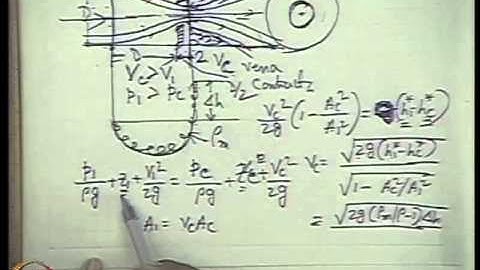 D
D/2
V_c vena
V_c > V_1 contracta
p_1 > p_c
Δh
ρ_m
V_c²/2g (1 - A_c²/A_1²) = (h_1* - h_c*)
p_1/ρg + z_1 + V_1²/2g = p_c/ρg + z_c + V_c²/2g
V_c = √(2g(h_1* - h_c*)) / √(1 - A_c²/A_1²)
A_1 = V_c A_c
= √(2g(ρ_m/ρ - 1)Δh